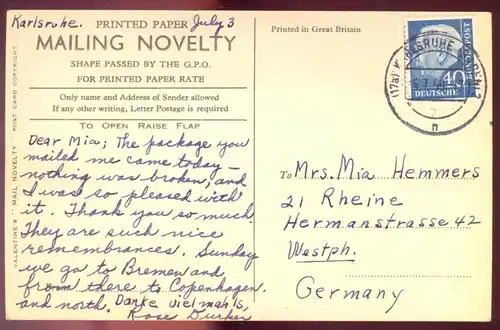 Karlsruhe. July 3
PRINTED PAPER
MAILING NOVELTY
SHAPE PASSED BY THE G.P.O.
FOR PRINTED PAPER RATE
Only name and Address of Sender allowed
If any other writing, Letter Postage is required
TO OPEN RAISE FLAP
Dear Mia; The package you
mailed me came today—
nothing was broken, and
I was so pleased with
it. Thank you so much.
They are such nice
remembrances. Sunday
we go to Bremen and
from there to Copenhagen
and north. Danke vielmals,
Rose
VALENTINE'S MAIL NOVELTY POST CARD COPYRIGHT
Printed in Great Britain
DEUTSCHE
BUNDESPOST
40
(17a) KARLSRUHE
h
To Mrs. Mia Hemmers
21 Rheine
Hermanstrasse 42
Westph.
Germany